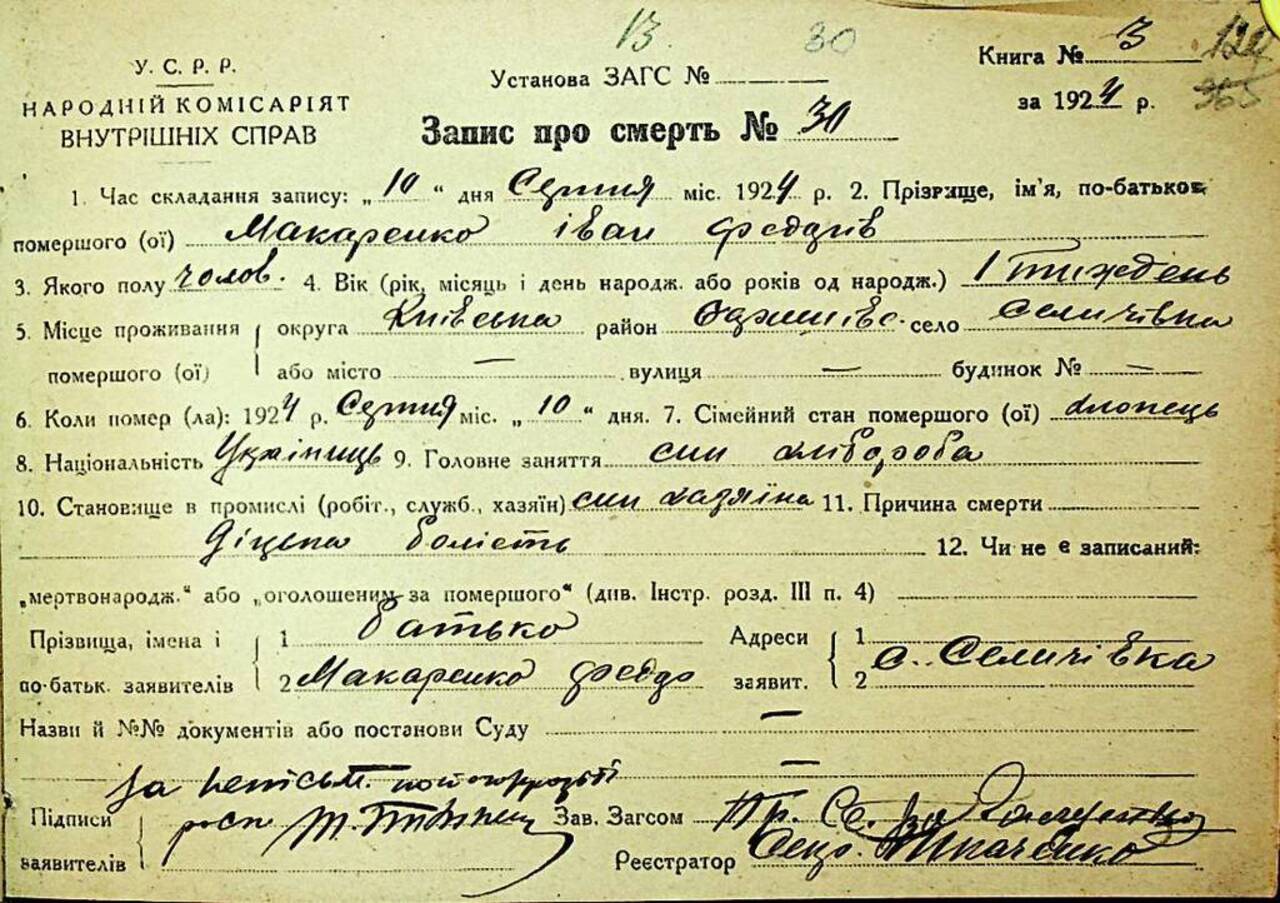 13. 30
Книга № 3 124
365
У. С. Р. Р.
Установа ЗАГС №
за 1924 р.
НАРОДНІЙ КОМІСАРІЯТ
ВНУТРІШНІХ СПРАВ
Запис про смерть № 30
1. Час складання запису: „10“ дня Серпня міс. 1924 р. 2. Прізвище, ім'я, по-батькові
помершого (ої) Макаренко Іван Федорів
3. Якого полу чолов. 4. Вік (рік, місяць і день народж. або років од народж.) 1 тиждень
5. Місце проживання округа Київська район село Селичівка
помершого (ої) або місто — вулиця — будинок № —
6. Коли помер (ла): 1924 р. Серпня міс. „10“ дня. 7. Сімейний стан помершого (ої) хлопець
8. Національність Українць 9. Головне заняття син хлібороба
10. Становище в промислі (робіт., служб., хазяїн) син хазяїна 11. Причина смерти
Діцька болість 12. Чи не є записаний:
„мертвонародж.“ або „оголошеним за помершого“ (див. Інстр. розд. III п. 4)
Прізвища, імена і 1 батько Адреси 1
по-батьк. заявителів 2 Макаренко Федор заявит. 2 с. Селичівка
Назви й №№ документів або постанови Суду —
—
за неписьм.
Підписи росп Зав. Загсом
заявителів Реєстратор Ткаченко